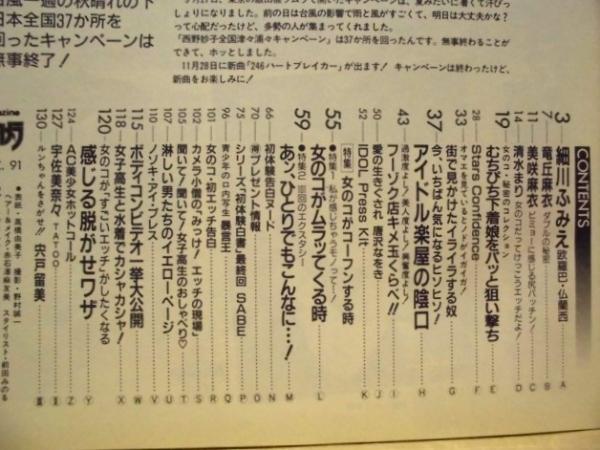 台風一過の秋晴れの下
日本全国37か所を
回ったキャンペーンは
無事終了!
しょりになりました。前の日は台風の影響で雨と風がすごくて、明日は大丈夫かな?
って心配だったけど、多勢の人が集まってくれました。
「西野妙子全国津々浦々キャンペーン」は37か所を回ったんです。無事終わることが
できて、ホッとしました。
11月28日に新曲「246ハートブレイカー」が出ます! キャンペーンは終わったけど、
新曲をお楽しみに!
CONTENTS
3 細川ふみえ 欧羅巴・仏蘭西 A
7 竜丘麻衣 ダブルの秘密 B
11 美咲麻衣 ビミョーに感じる尻バッチン! C
14 清水まり 女のコだってけっこうエッチだよ! D
女のコ・秘密のコレクション
19 むちぴち下着娘をパッと狙い撃ち E
28 Stars Conference F
オマエを見ているとノドがイガイガ!
33 街で見かけたイライラする奴 G
37 今、いちばん気になるヒソヒソ!
アイドル楽屋の陰口 H
過激度よし!美人度よし!興奮度よし!
43 フーゾク店キメ玉くらべ!! I
50 愛の生きぐされ 唐沢なをき J
52 IDOL Press Kit K
[特集] 女のコがコーフンする時
55 ●特集1 私が感じちゃうモノって…!
女のコがムラッてくる時 L
59 ●特集2 Ⅲ回のエクスタシー
あッ、ひとりでもこんなに…! M
66 初体験告白ヌード N
70 ㊕プレゼント情報 O
75 シリーズ、初体験白書・最終回 SABE P
青少年のロ内写生
96 暴言王 Q
101 女のコ・初エッチ告白 R
102 カメラ小僧の「みっけ! エッチの現場」 S
105 聞いて!聞いて!女子高生のおしゃべり♡ T
107 淋しい男たちのイエローページ U
110 ノゾキ・アイ・プレス V
115 ボディコンビデオ一挙大公開 W
118 女子高生と水着でカシャカシャ! X
120 女のコが、“すごいエッチ”がしたくなる
感じる脱がせワザ Y
124 AC美少女ホットコール Z
127 宇佐美奈々 TATOO
130 ルンちゃんをさがせ!! 宍戸留美
●表紙・高橋由美子 撮影・野村誠一
ヘアー&メイク・赤石澤麻友美 スタイリスト・前田みのる
91